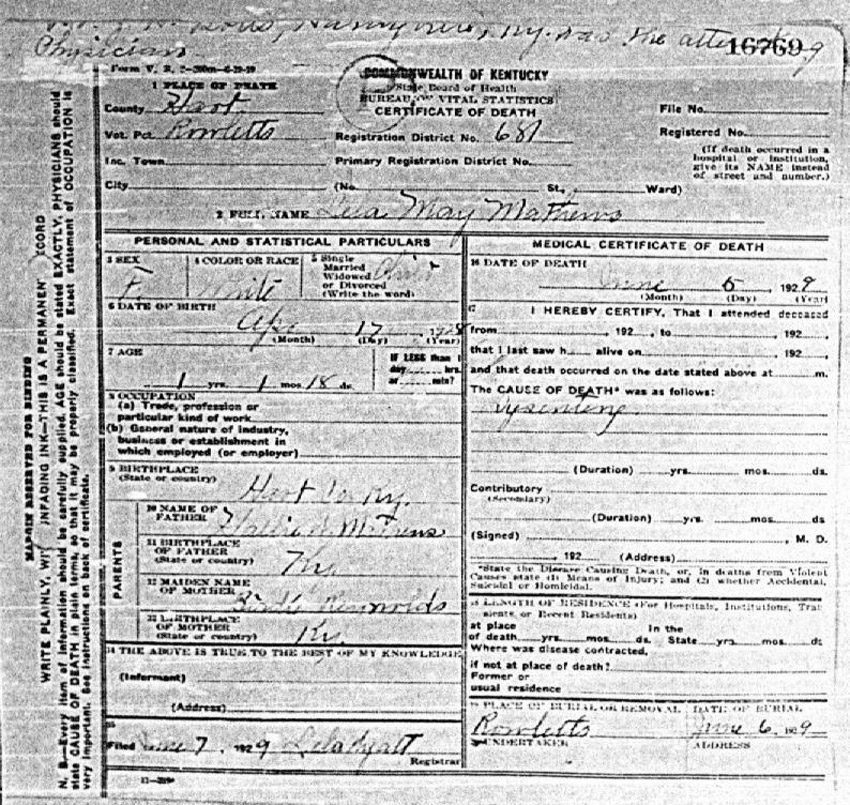 Ky. was the attending
Physician
16769
Form V. S.
COMMONWEALTH OF KENTUCKY
State Board of Health
BUREAU OF VITAL STATISTICS
CERTIFICATE OF DEATH
1 PLACE OF DEATH
County Hart
Vot. Pct Rowletts
Inc. Town
City
Registration District No. 681
Primary Registration District No.
(No. St., Ward)
File No.
Registered No.
(If death occurred in a
hospital or institution,
give its NAME instead
of street and number.)
2 FULL NAME Lela May Mathews
MARGIN RESERVED FOR BINDING
WRITE PLAINLY, WITH UNFADING INK—THIS IS A PERMANENT RECORD
N. B.—Every item of information should be carefully supplied. AGE should be stated EXACTLY. PHYSICIANS should
state CAUSE OF DEATH in plain terms, so that it may be properly classified. Exact statement of OCCUPATION is
very important. See instructions on back of certificate.
PERSONAL AND STATISTICAL PARTICULARS
3 SEX
F
4 COLOR OR RACE
White
5 Single
Married
Widowed
or Divorced
(Write the word)
Child
6 DATE OF BIRTH
Apr 17, 1928
(Month) (Day) (Year)
7 AGE
1 yrs. 1 mos. 18 ds.
IF LESS than 1
day hrs.
or min?
8 OCCUPATION
(a) Trade, profession or
particular kind of work
(b) General nature of industry,
business or establishment in
which employed (or employer)
9 BIRTHPLACE
(State or country)
Hart Co. Ky.
PARENTS
10 NAME OF
FATHER
Mathews
11 BIRTHPLACE
OF FATHER
(State or country)
Ky
12 MAIDEN NAME
OF MOTHER
Birdie Reynolds
13 BIRTHPLACE
OF MOTHER
(State or country)
Ky
14 THE ABOVE IS TRUE TO THE BEST OF MY KNOWLEDGE
(Informant)
(Address)
15
Filed June 7, 1929
Registrar
11-
MEDICAL CERTIFICATE OF DEATH
16 DATE OF DEATH
June 5, 1929
(Month) (Day) (Year)
17 I HEREBY CERTIFY, That I attended deceased
from , 192 , to , 192 ,
that I last saw h alive on , 192 ,
and that death occurred on the date stated above at m.
The CAUSE OF DEATH* was as follows:
Dysentery
(Duration) yrs. mos. ds.
Contributory
(Secondary)
(Duration) yrs. mos. ds
(Signed) , M. D.
, 192 (Address)
*State the Disease Causing Death, or, in deaths from Violent
Causes state (1) Means of Injury; and (2) whether Accidental,
Suicidal or Homicidal.
18 LENGTH OF RESIDENCE (For Hospitals, Institutions, Transients,
or Recent Residents)
at place In the
of death yrs. mos. ds. State yrs. mos. ds
Where was disease contracted,
if not at place of death?
Former or
usual residence
19 PLACE OF BURIAL OR REMOVAL
Rowletts
DATE OF BURIAL
June 6, 1929
20 UNDERTAKER
ADDRESS